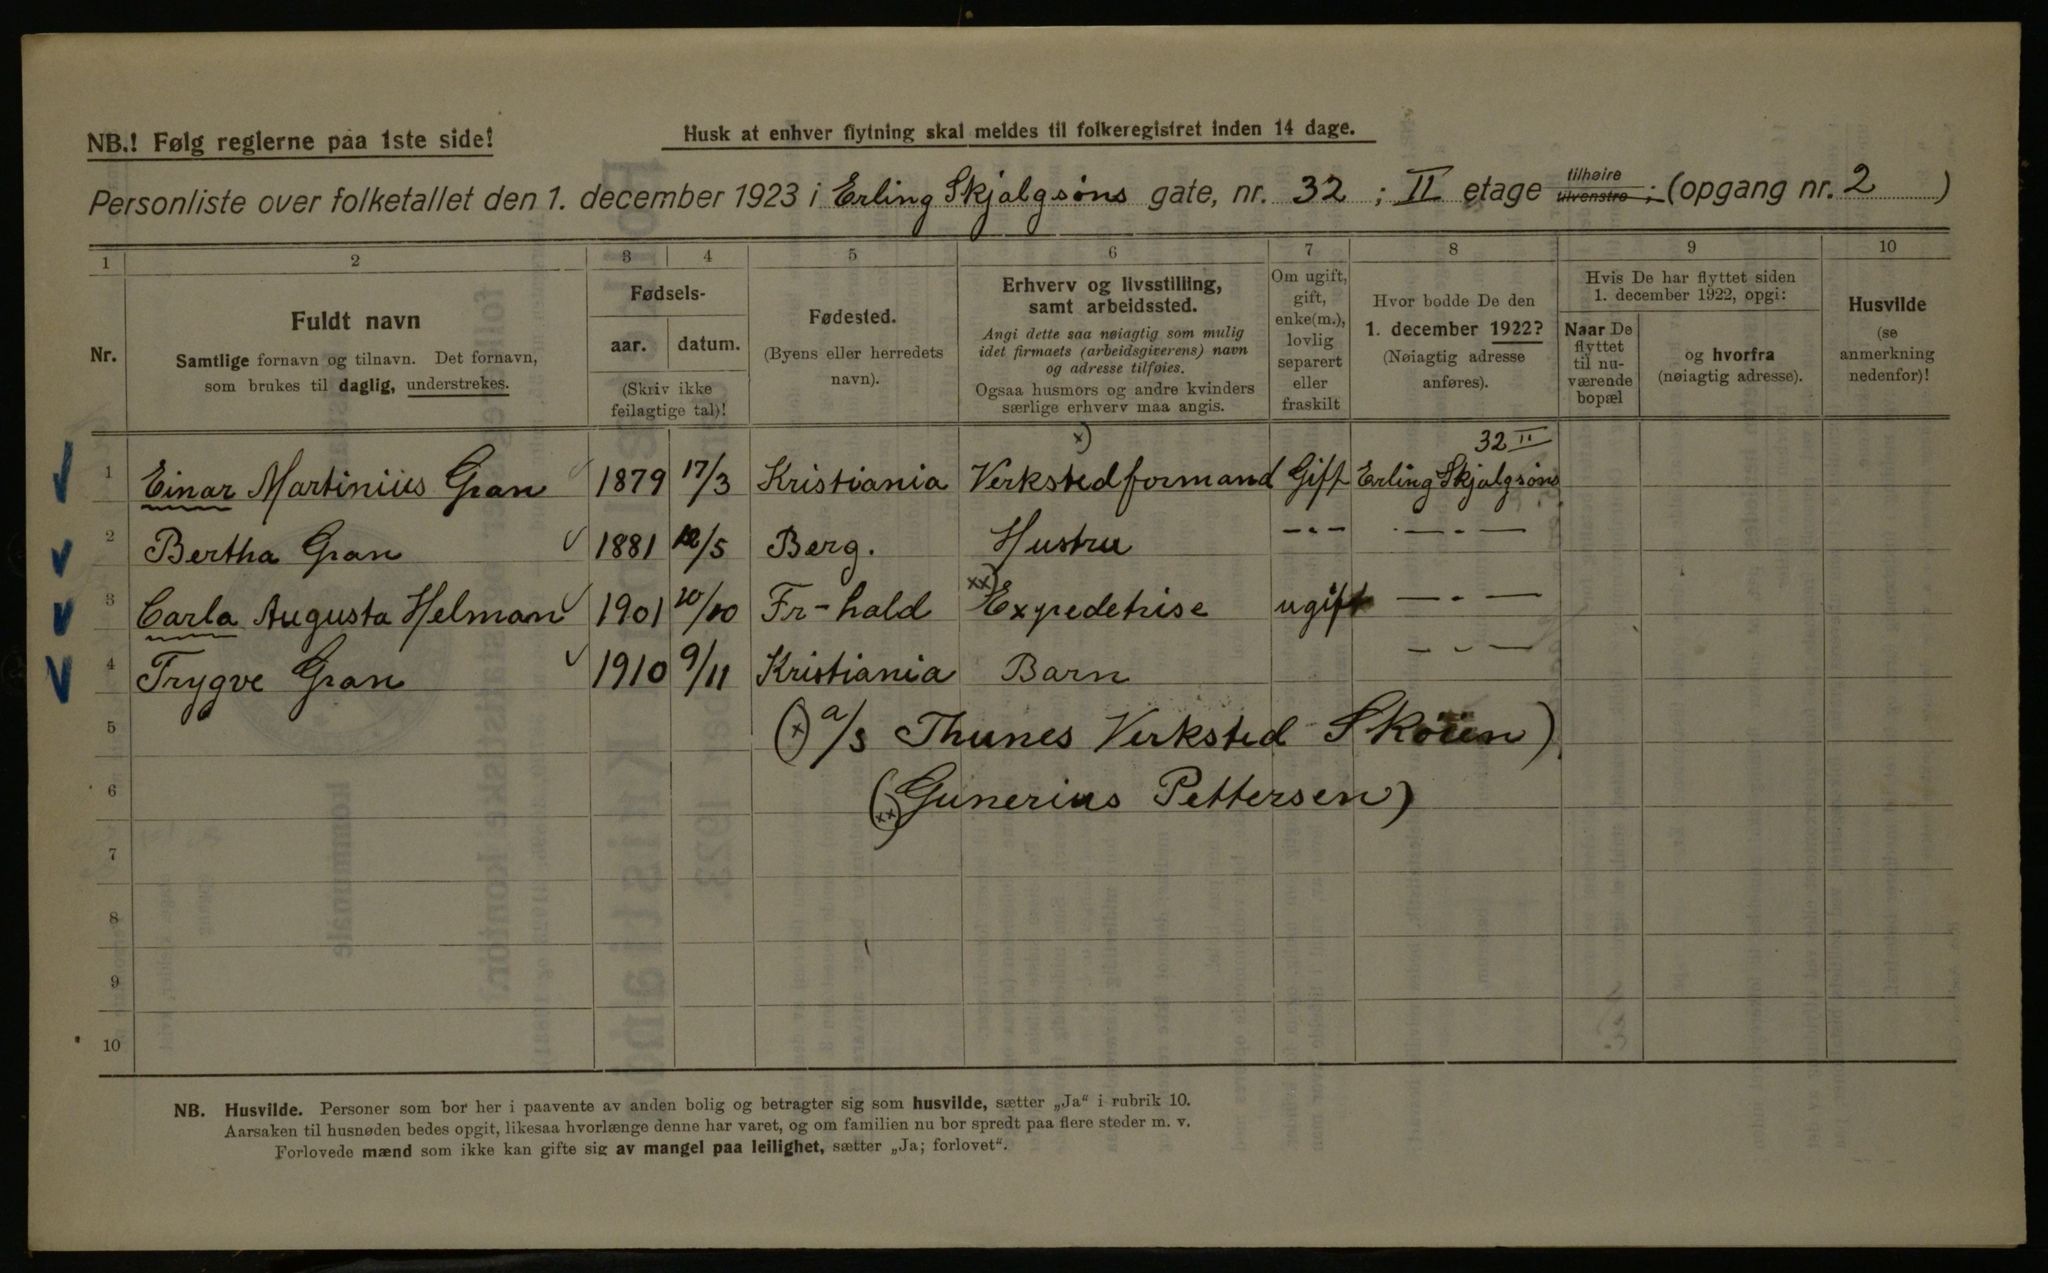 NB.! Følg reglerne paa 1ste side!
Husk at enhver flytning skal meldes til folkeregistret inden 14 dage.
Personliste over folketallet den 1. december 1923 i Erling Skjalgsøns gate, nr. 32 ; II etage tilhøire tilvenstre ; (opgang nr. 2 )
1 2 3 4 5 6 7 8 9 10
Nr.
Fuldt navn
Samtlige fornavn og tilnavn. Det fornavn,
som brukes til daglig, understrekes.
Fødsels-
aar. datum.
(Skriv ikke
feilagtige tal)!
Fødested.
(Byens eller herredets
navn).
Erhverv og livsstilling,
samt arbeidssted.
Angi dette saa nøiagtig som mulig
idet firmaets (arbeidsgiverens) navn
og adresse tilføies.
Ogsaa husmors og andre kvinders
særlige erhverv maa angis.
Om ugift,
gift,
enke(m.),
lovlig
separert
eller
fraskilt
Hvor bodde De den
1. december 1922?
(Nøiagtig adresse
anføres).
Hvis De har flyttet siden
1. december 1922, opgi:
Naar De
flyttet
til nu-
værende
bopæl
og hvorfra
(nøiagtig adresse).
Husvilde
(se
anmerkning
nedenfor)!
x) 32 II
1 Einar Martinius Gran 1879 17/3 Kristiania Verkstedformand Gift Erling Skjalgsøns
2 Bertha Gran 1881 12/5 Berg. Hustru —"— —"—
3 Carla Augusta Helman 1901 20/10 Fr-hald xx) Expedetrise ugift —"—
4 Trygve Gran 1910 9/11 Kristiania Barn —"—
5 (x) a/s Thunes Verksted Skøien)
6 (xx) Gunerius Pettersen)
7
8
9
10
NB. Husvilde. Personer som bor her i paavente av anden bolig og betragter sig som husvilde, sætter „Ja“ i rubrik 10.
Aarsaken til husnøden bedes opgit, likesaa hvorlænge denne har varet, og om familien nu bor spredt paa flere steder m. v.
Forlovede mænd som ikke kan gifte sig av mangel paa leilighet, sætter „Ja; forlovet“.